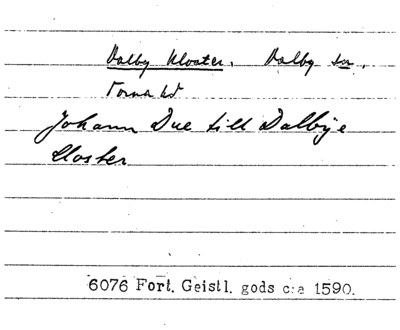 Dalby Kloster. Dalby sn,
Torna hd
Johann Due till Dalbÿe
Closter
6076 Fort. Geistl. gods c:a 1590.